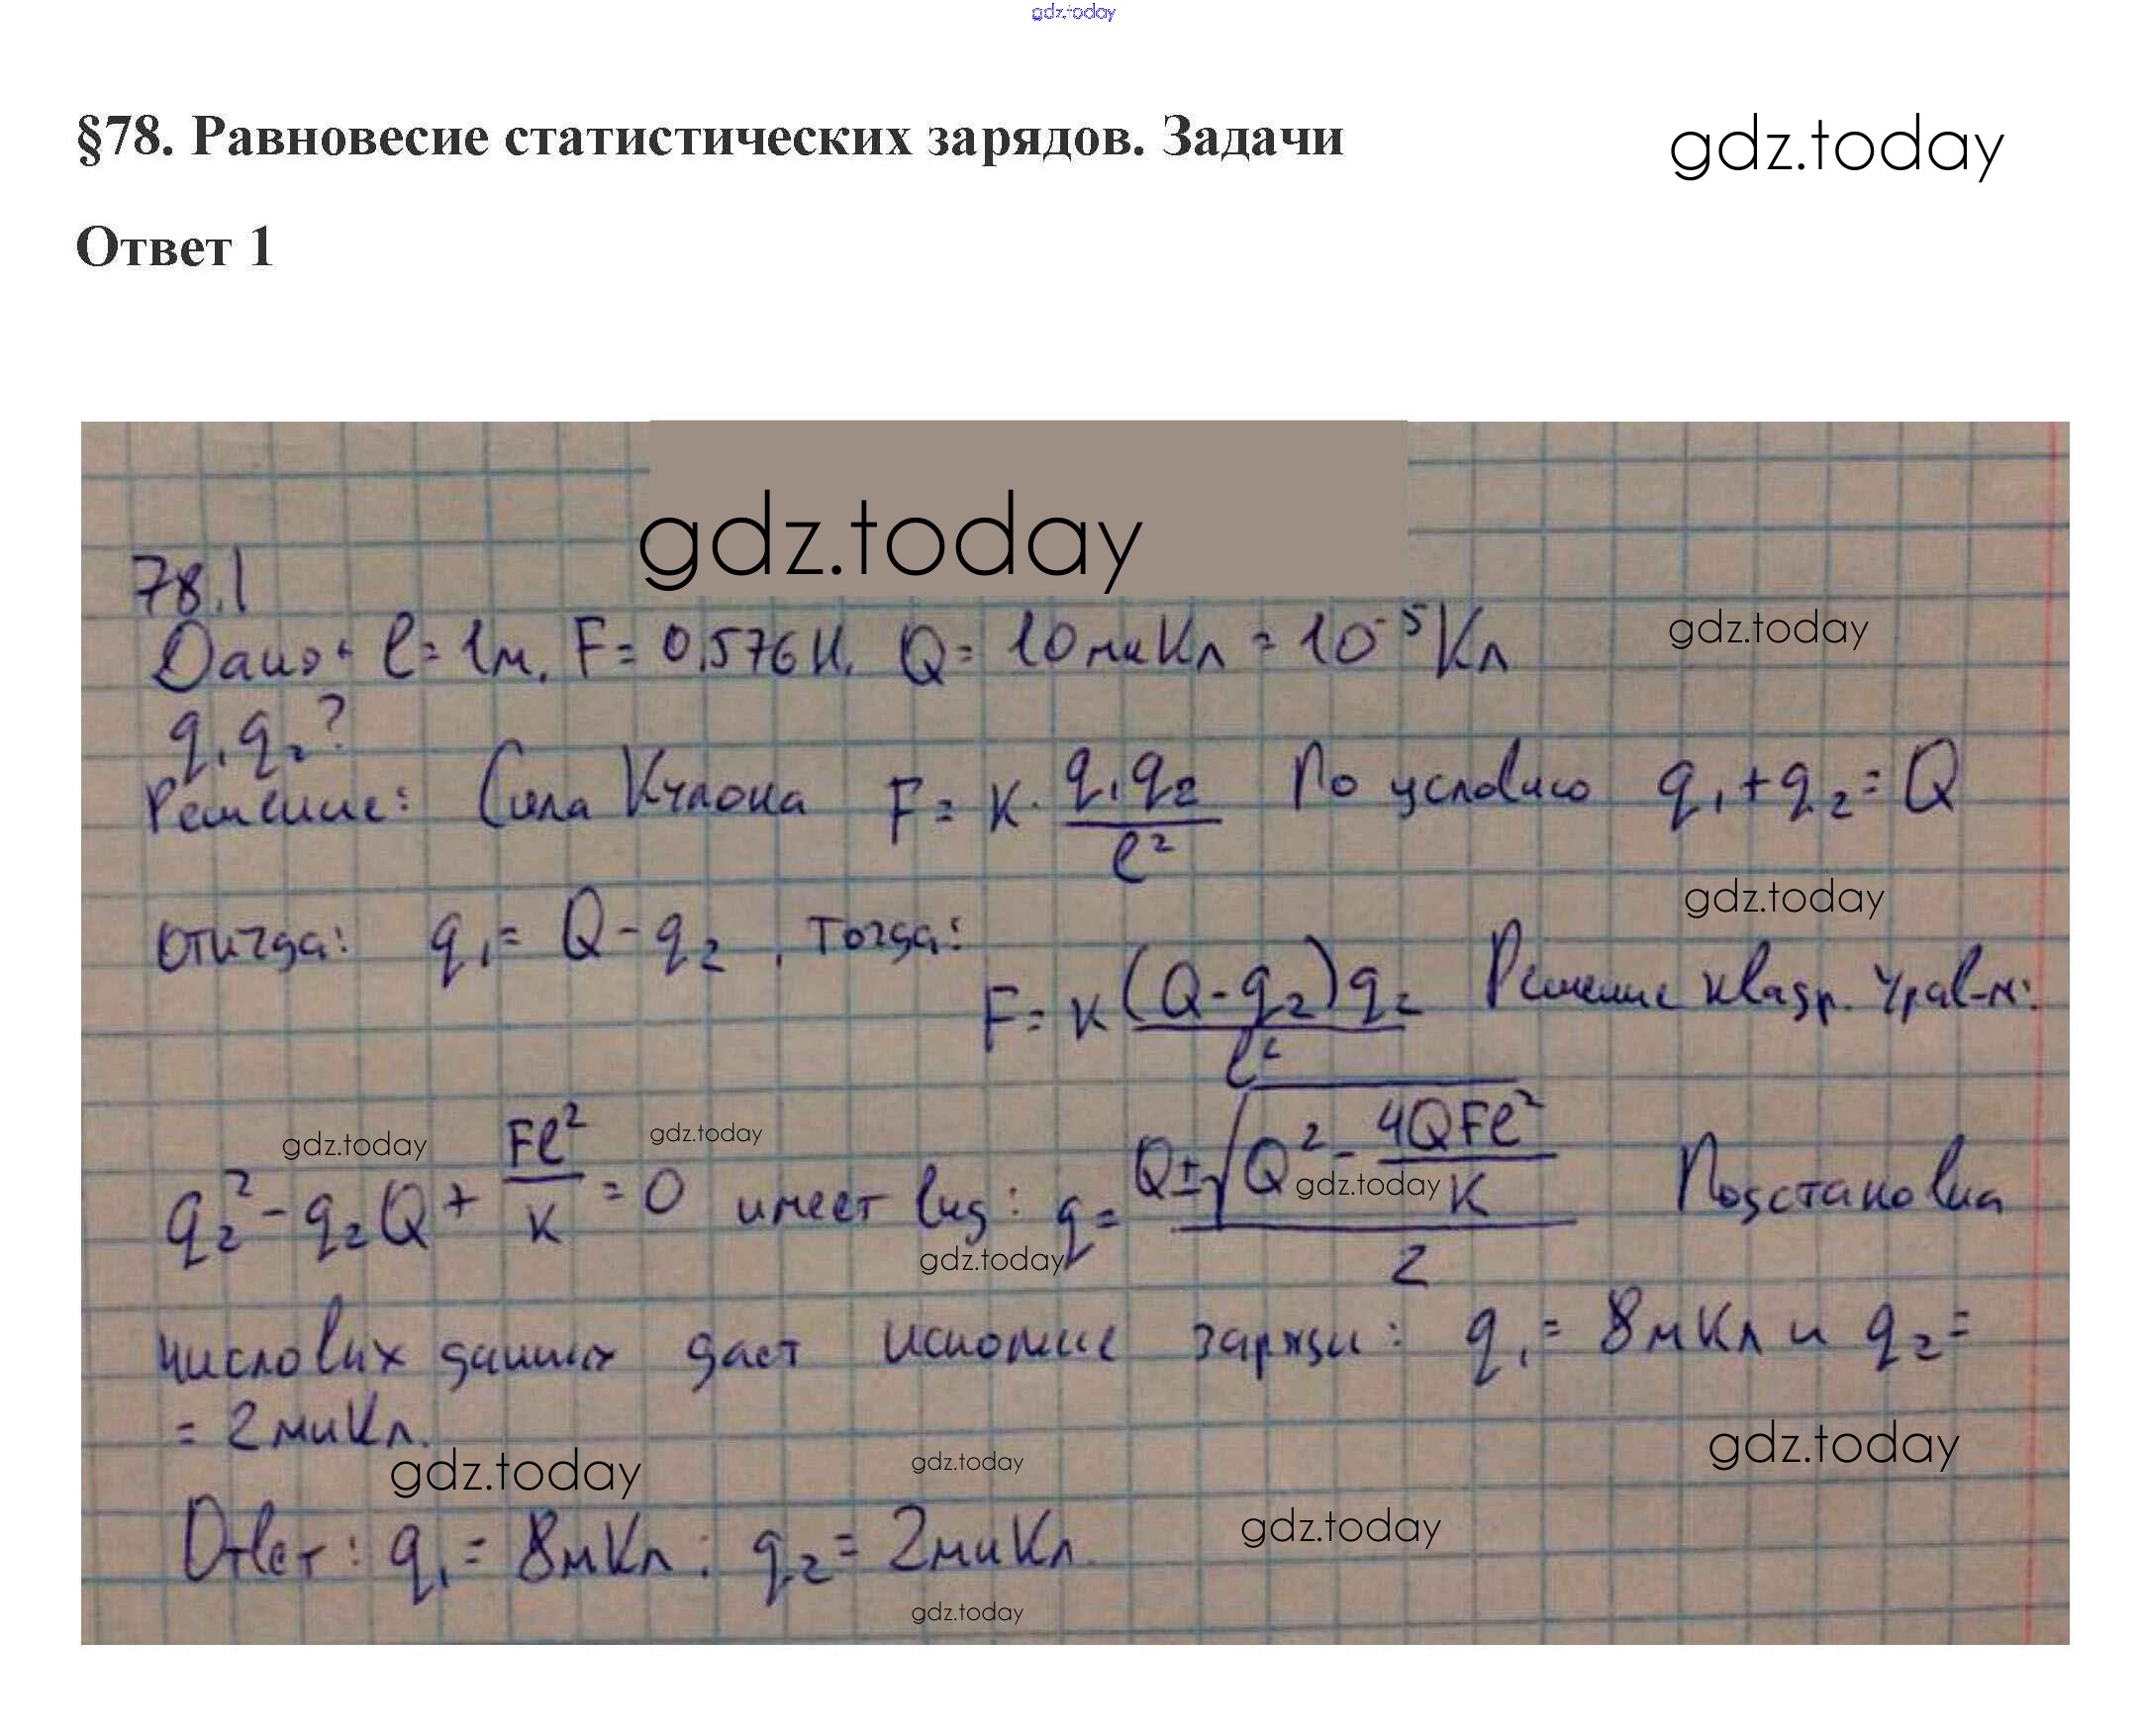 gdz.today
§78. Равновесие статистических зарядов. Задачи
gdz.today
Ответ 1
gdz.today
78.1
Дано: l = 1м, F = 0,576 Н, Q = 10 мкКл = 10^-5 Кл
gdz.today
q₁ q₂ ?
Решение: Сила Кулона F = k · q₁q₂ / l² По условию q₁ + q₂ = Q
gdz.today
откуда: q₁ = Q - q₂, тогда:
F = k (Q - q₂)q₂ / l² Решение квадр. урав-я:
gdz.today
gdz.today
q₂² - q₂Q + Fl² / k = 0 имеет вид: q = Q ± √(Q² - 4QFl² / k) / 2 Подстановка
gdz.today
gdz.today
числових данных даст искомые заряды: q₁ = 8 мКл и q₂ =
= 2 мкКл.
gdz.today
gdz.today
gdz.today
Ответ: q₁ = 8 мКл; q₂ = 2 мкКл.
gdz.today
gdz.today